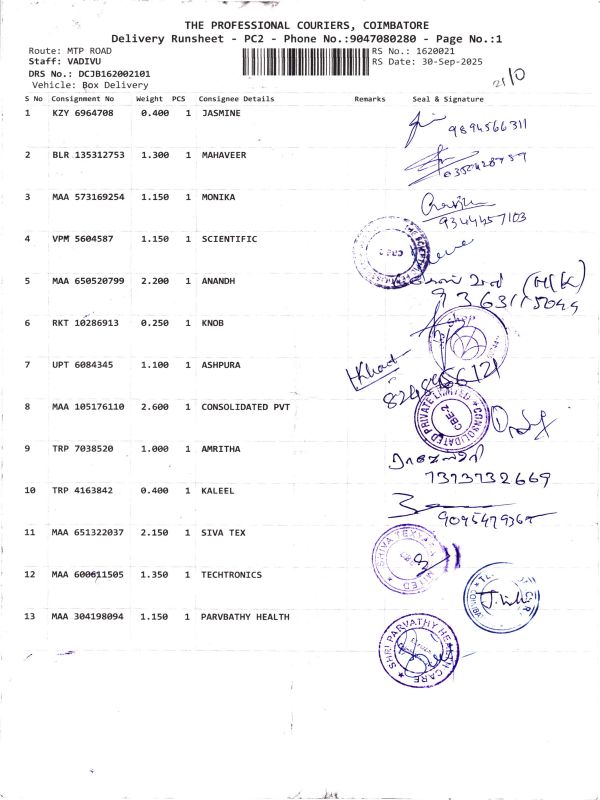 THE PROFESSIONAL COURIERS, COIMBATORE
Delivery Runsheet - PC2 - Phone No.:9047080280 - Page No.:1
Route: MTP ROAD RS No.: 1620021
Staff: VADIVU RS Date: 30-Sep-2025
DRS No.: DCJB162002101
Vehicle: Box Delivery
S No Consignment No Weight PCS Consignee Details Remarks Seal & Signature
1 KZY 6964708 0.400 1 JASMINE
9894566311
2 BLR 135312753 1.300 1 MAHAVEER
3 MAA 573169254 1.150 1 MONIKA
9344457103
4 VPM 5604587 1.150 1 SCIENTIFIC
CBE-2
5 MAA 650520799 2.200 1 ANANDH
9363115049
6 RKT 10286913 0.250 1 KNOB
7 UPT 6084345 1.100 1 ASHPURA
8 MAA 105176110 2.600 1 CONSOLIDATED PVT
CONSOLIDATED PRIVATE LIMITED
CBE-2
9 TRP 7038520 1.000 1 AMRITHA
7373732669
10 TRP 4163842 0.400 1 KALEEL
11 MAA 651322037 2.150 1 SIVA TEX
12 MAA 600611505 1.350 1 TECHTRONICS
13 MAA 304198094 1.150 1 PARVBATHY HEALTH
SHRI PARVATHY HEALTH CARE